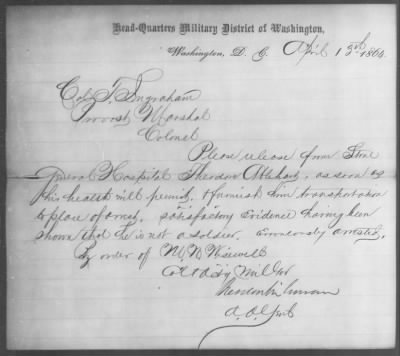 Head-Quarters Military District of Washington,
Washington, D. C. April 13th 1864.
Col T. Ingraham
Provost Marshal
Colonel
Please release from Stone
General Hospital Theodore, as soon as
his health will permit, & furnish him transportation
to place of arrest, satisfactory evidence having been
shown that he is not a soldier, erroneously arrested.
By order of M. N. Wisewell
Col & Mil Gov
A. A. Genl